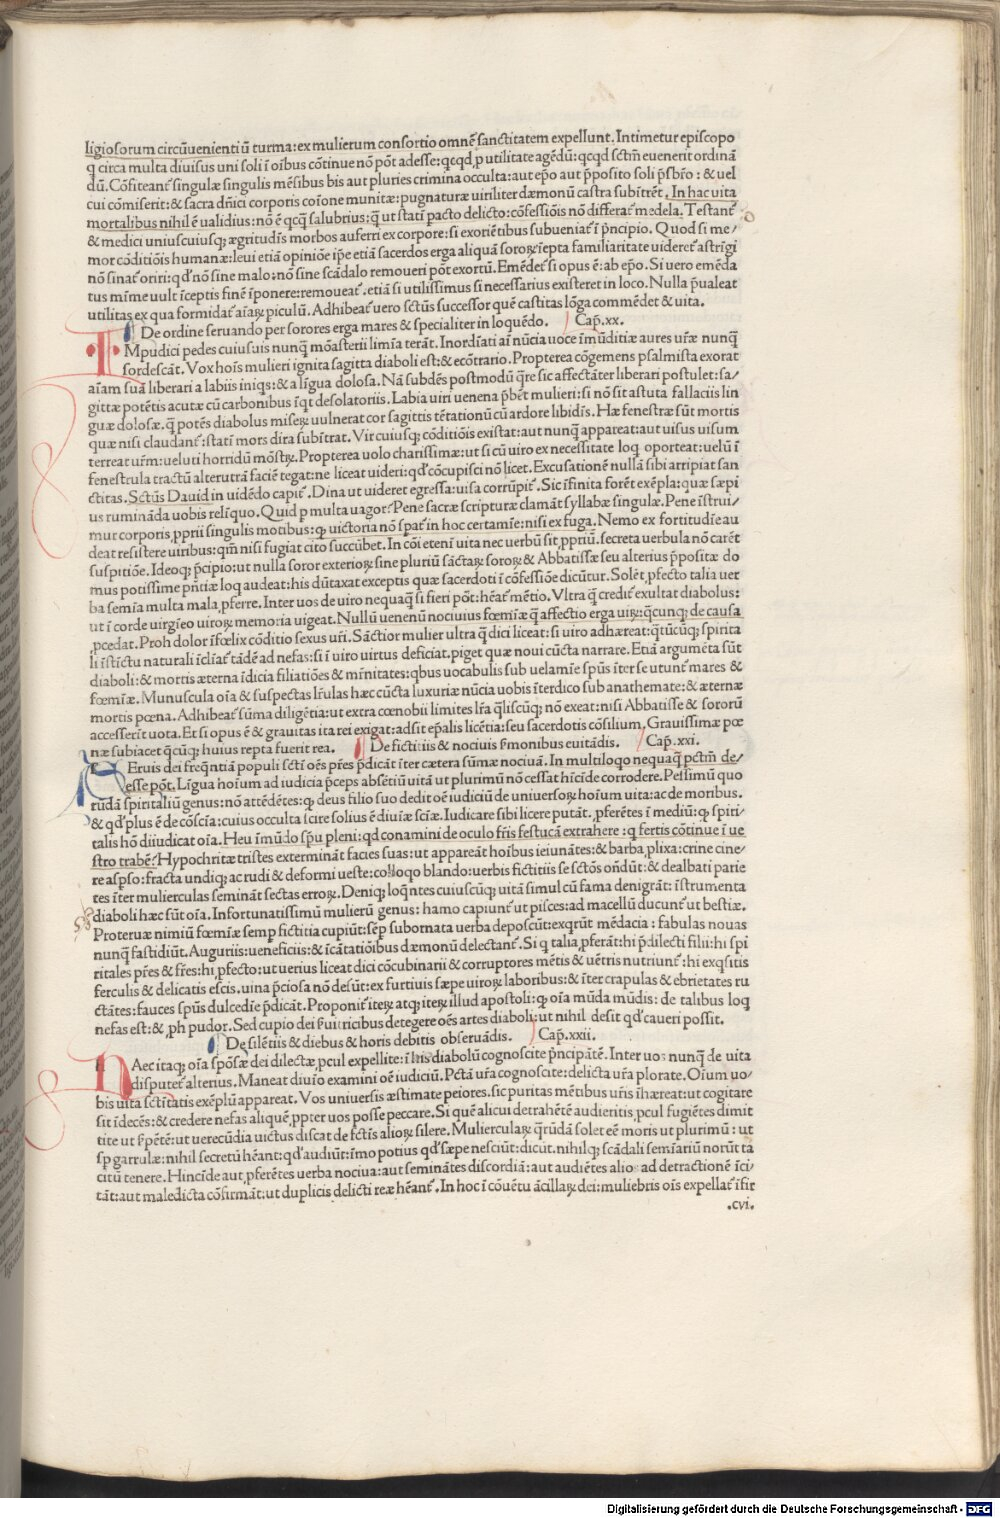 ligiosorum circūuenientiū turma: ex mulierum consortio omnē sanctitatem expellunt. Intimetur episcopo
q̄ circa multa diuisus uni soli ī oībus cōtinue nō pōt adesse: qcqd ꝓ utilitate agēdū: qcqd sctm̄ euenerit ordinā
dū. Cōfiteant̄ singulæ singulis mēsibus bis aut pluries crimina occulta: aut epō aut p̄posito soli p̄sbr̄o: & uel
cui cōmiserit: & sacra dn̄ici corporis coīone munitæ: pugnaturæ uiriliter dæmonū castra subītrēt. In hac uita
mortalibus nihil ē ualidius: nō ē qcq̄ salubrius: q̄ ut statī pacto delicto: cōfessiōis nō differat̄ medela. Testant̄
& medici uniuscuiusq; ægritudīs morbos auferri ex corpore: si exoriētibus subueniat̄ ī p̄ncipio. Quod si me/
mor cōditiōis humanæ: leui etiā opiniōe ip̄e etiā sacerdos erga aliquā soroꝝ iepta familiaritate uideret̄ astrīgi
nō sinat̄ oriri: qd̄ nō sine malo: nō sine scādalo remoueri pōt exortū. Emēdet̄ si opus ē: ab epō. Si uero emēda
tus mīme uult īceptis finē īponere: remoueat̄. etiā si utilissimus si necessarius existeret in loco. Nulla p̄ualeat
utilitas ex qua formidat̄ aīaꝝ piculū. Adhibeat̄ uero sctūs successor quē castitas lōga commēdet & uita.
De ordine seruando per sorores erga mares & specialiter in loquēdo. Cap̄. xx.
IMpudici pedes cuiusuis nunq̄ mōasterii limīa terāt. Inordīati aī nūcia uoce īmūditiæ aures ur̄æ nunq̄
sordescāt. Vox hoīs mulieri ignita sagitta diaboli est: & ecōtrario. Propterea cōgemens psalmista exorat
aīam suā liberari a labiis iniqs: & a līgua dolosa. Nā subdēs postmodū q̄re sic affectāter liberari postulet: sa/
gittæ potētis acutæ cū carbonibus īqt desolatoriis. Labia uiri uenena p̄bēt mulieri: si nō sit astuta fallaciis lin
guæ dolosæ. q̄ potēs diabolus miseꝝ uulnerat cor sagittis tētationū cū ardore libidīs. Hæ fenestræ sūt mortis
quæ nisi claudant̄: statī mors dira subītrat. Vir cuiusq; cōditiōis existat: aut nunq̄ appareat: aut uisus uisum
terreat ur̄m: ueluti horridū mōstꝝ. Propterea uolo charissimæ: ut si cū uiro ex necessitate loq oporteat: uelū ī
fenestrula tractū alterutrā faciē tegat: ne liceat uideri: qd̄ cōcupisci nō licet. Excusationē nullā sibi arripiat san
ctitas. Sctūs Dauid in uidēdo capit̄. Dina ut uideret egressa: uisa corrūpit̄. Sic īfinita forēt exēpla: quæ sæpi
us rumināda uobis relīquo. Quid p multa uagor? Pene sacræ scripturæ clamāt syllabæ singulæ. Pene īstrui/
mur corporis ꝓprii singulis motibus: ꝙ uictoria nō spat̄ in hoc certamīe: nisi ex fuga. Nemo ex fortitudīe au
deat resistere uiribus: qm̄ nisi fugiat cito succūbet. In cōi etenī uita nec uerbū sit ꝓpriū. secreta uerbula nō carēt
suspitiōe. Ideoq; p̄cipio: ut nulla soror exterioꝝ sine pluriū sāctaꝝ soroꝝ & Abbatissæ seu alterius p̄positæ do
mus potissime pn̄tiæ loq audeat: his dūtaxat exceptis quæ sacerdoti ī cōfessiōe dicūtur. Solēt ꝓfecto talia uer
ba semīa multa mala ꝓferre. Inter uos de uiro nequaq̄ si fieri pōt: hēat̄ mētio. Vltra q̄ credit̄ exultat diabolus:
ut ī corde uirgīeo uiroꝝ memoria uigeat. Nullū uenenū nociuius fœmīæ q̄ affectio erga uiꝝ: q̄cunq; de causa
ꝓcedat. Proh dolor īfœlix cōditio sexus ur̄i. Sāctior mulier ultra q̄ dici liceat: si uiro adhæreat: q̄tūcūq; spirita
li īstīctu naturali īclīat̄ tādē ad nefas: si ī uiro uirtus deficiat. piget quæ noui cūcta narrare. Etiā argumēta sūt
diaboli: & mortis æterna īdicia filiatiōes & mr̄nitates: qbus uocabulis sub uelamīe spūs īter se utunt̄ mares &
fœmīæ. Munuscula oīa & suspectas lr̄ulas hæc cūcta luxuriæ nūcia uobis īterdico sub anathemate: & æternæ
mortis pœna. Adhibeat̄ sūma diligētia: ut extra cœnobii limites lr̄a q̄liscūq; nō exeat: nisi Abbatisse & sororū
accesserit uota. Et si opus ē & grauitas ita rei exigat: adsit ep̄alis licētia: seu sacerdotis cōsilium. Grauissimæ pœ
næ subiacet q̄cūq; huius repta fuerit rea. De fictitiis & nociuis s̄monibus euitādis. Cap̄. xxi.
SEruis dei freqn̄tiā populi sctī oēs pr̄es p̄dicāt īter cætera sūmæ nociuā. In multiloqo nequaq̄ pctm̄ de/
esse pōt. Līgua hoīum ad iudicia p̄ceps absētiū uitā ut plurimū nō cessat hīcīde corrodere. Pessimū quo
rūdā spiritaliū genus: nō attēdētes: ꝙ deus filio suo dedit oē iudiciū de uniuersoꝝ hoīum uita: ac de moribus.
& qd̄ plus ē de cōscīa: cuius occulta iscire solius ē diuīæ scīæ. Iudicare sibi licere putāt. ꝓferētes ī mediū: ꝙ spiri/
talis hō diiudicat oīa. Heu īmūdo sp̄u pleni: qd conamini de oculo fr̄is festucā extrahere: q fertis cōtinue ī ue
stro trabē? Hypochritæ tristes extermināt facies suas: ut appareāt hoībus ieiunātes: & barba ꝓlixa: crine cine/
re aspso: fracta undiq; ac rudi & deformi ueste: colloqo blando: uerbis fictitiis se sctōs on̄dūt: & dealbati parie
tes īter mulierculas semināt sectas erroꝝ. Deniq; loqn̄tes cuiuscūq; uitā simul cū fama denigrāt: īstrumenta
diaboli hæc sūt oīa. Infortunatissimū mulierū genus: hamo capiunt̄ ut pisces: ad macellū ducunt̄ ut bestiæ.
Proteruæ nimiū fœmīæ semp fictitia cupiūt: sēp subornata uerba deposcūt: exqrūt mēdacia: fabulas nouas
nunq̄ fastidiūt. Auguriis: ueneficiis: & īcātatiōibus dæmonū delectant̄. Si q talia ꝓferāt: hi p̄dilecti filii: hi spi
ritales pr̄es & fr̄es: hi ꝓfecto: ut uerius liceat dici cōcubinarii & corruptores mētis & uētris nutriunt̄: hi exqsitis
ferculis & delicatis escis. uina p̄ciosa nō desūt: ex furtiuis sæpe uiroꝝ laboribus: & īter crapulas & ebrietates ru
ctātes: fauces spūs dulcedīe p̄dicāt. Proponit̄ iteꝝ atq; iteꝝ illud apostoli: ꝙ oīa mūda mūdis: de talibus loq
nefas est: & ꝓh pudor. Sed cupio dei s̄uitricibus detegere oēs artes diaboli: ut nihil desit qd̄ caueri possit.
De silētiis & diebus & horis debitis obseruādis. Cap̄. xxii.
HAec itaq; oīa spōsæ dei dilectæ ꝓcul expellite: ī his diabolū cognoscite p̄ncipātē. Inter uos nunq̄ de uita
disputet̄ alterius. Maneat diuīo examini oē iudiciū. Pctā ur̄a cognoscite: delicta ur̄a plorate. Oīum uo/
bis uita sctītatis exēplū appareat. Vos uniuersis æstimate peiores. sic puritas mētibus ur̄is īhæreat: ut cogitare
sit īdecēs: & credere nefas aliquē ꝓpter uos posse peccare. Si quē alicui detrahētē audieritis ꝓcul fugiētes dimit
tite ut s̄pētē: ut uerecūdia uictus discat de fctīs alioꝝ silere. Muliercułaꝝ q̄rūdā solet eē moris ut plurimū: ut
sp garrulæ: nihil secretū hēant: qd̄ audiūt: īmo potius qd̄ sæpe nesciūt: dicūt. nihilq; scādali semīariū norūt ta
citū tenere. Hincīde aut ꝓferētes uerba nociua: aut seminātes discordiā: aut audiētes alios ad detractionē īci/
tāt: aut maledicta cōfirmāt: ut duplicis delicti reæ hēant̄. In hoc ī cōuētu ācillaꝝ dei: muliebris oīs expellat̄ īfir
.cvi.
Digitalisierung gefördert durch die Deutsche Forschungsgemeinschaft - DFG